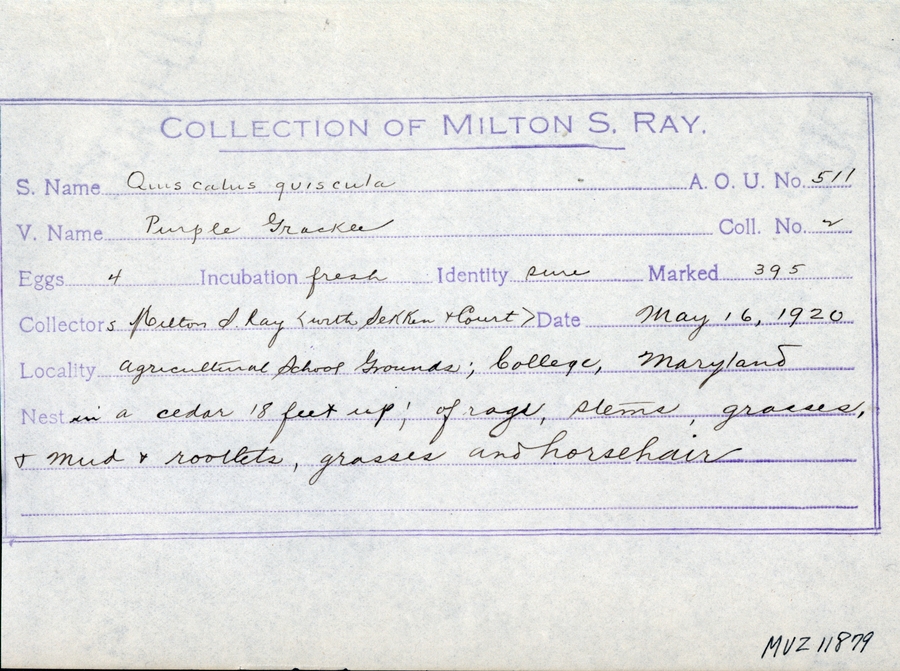 COLLECTION OF MILTON S. RAY.
S. Name Quiscalus quiscula A. O. U. No. 511
V. Name Purple Grackle Coll. No. 2
Eggs 4 Incubation fresh Identity sure Marked 395
Collectors Milton S. Ray (with & Court) Date May 16, 1920
Locality Agricultural School Grounds; College, Maryland
Nest in a cedar 18 feet up; of rags, stems, grasses,
& mud & rootlets, grasses and horsehair
MVZ 11879